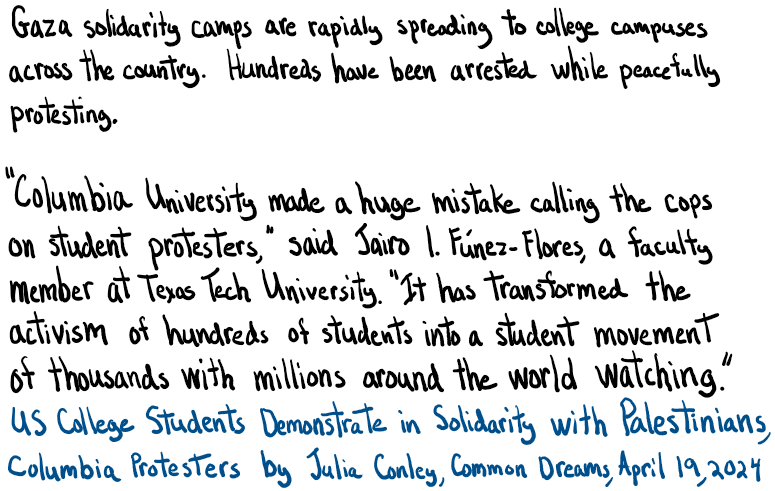 Gaza solidarity camps are rapidly spreading to college campuses
across the country. Hundreds have been arrested while peacefully
protesting.
"Columbia University made a huge mistake calling the cops
on student protesters," said Jairo I. Fúnez-Flores, a faculty
member at Texas Tech University. "It has transformed the
activism of hundreds of students into a student movement
of thousands with millions around the world watching."
US College Students Demonstrate in Solidarity with Palestinians,
Columbia Protesters by Julia Conley, Common Dreams, April 19, 2024